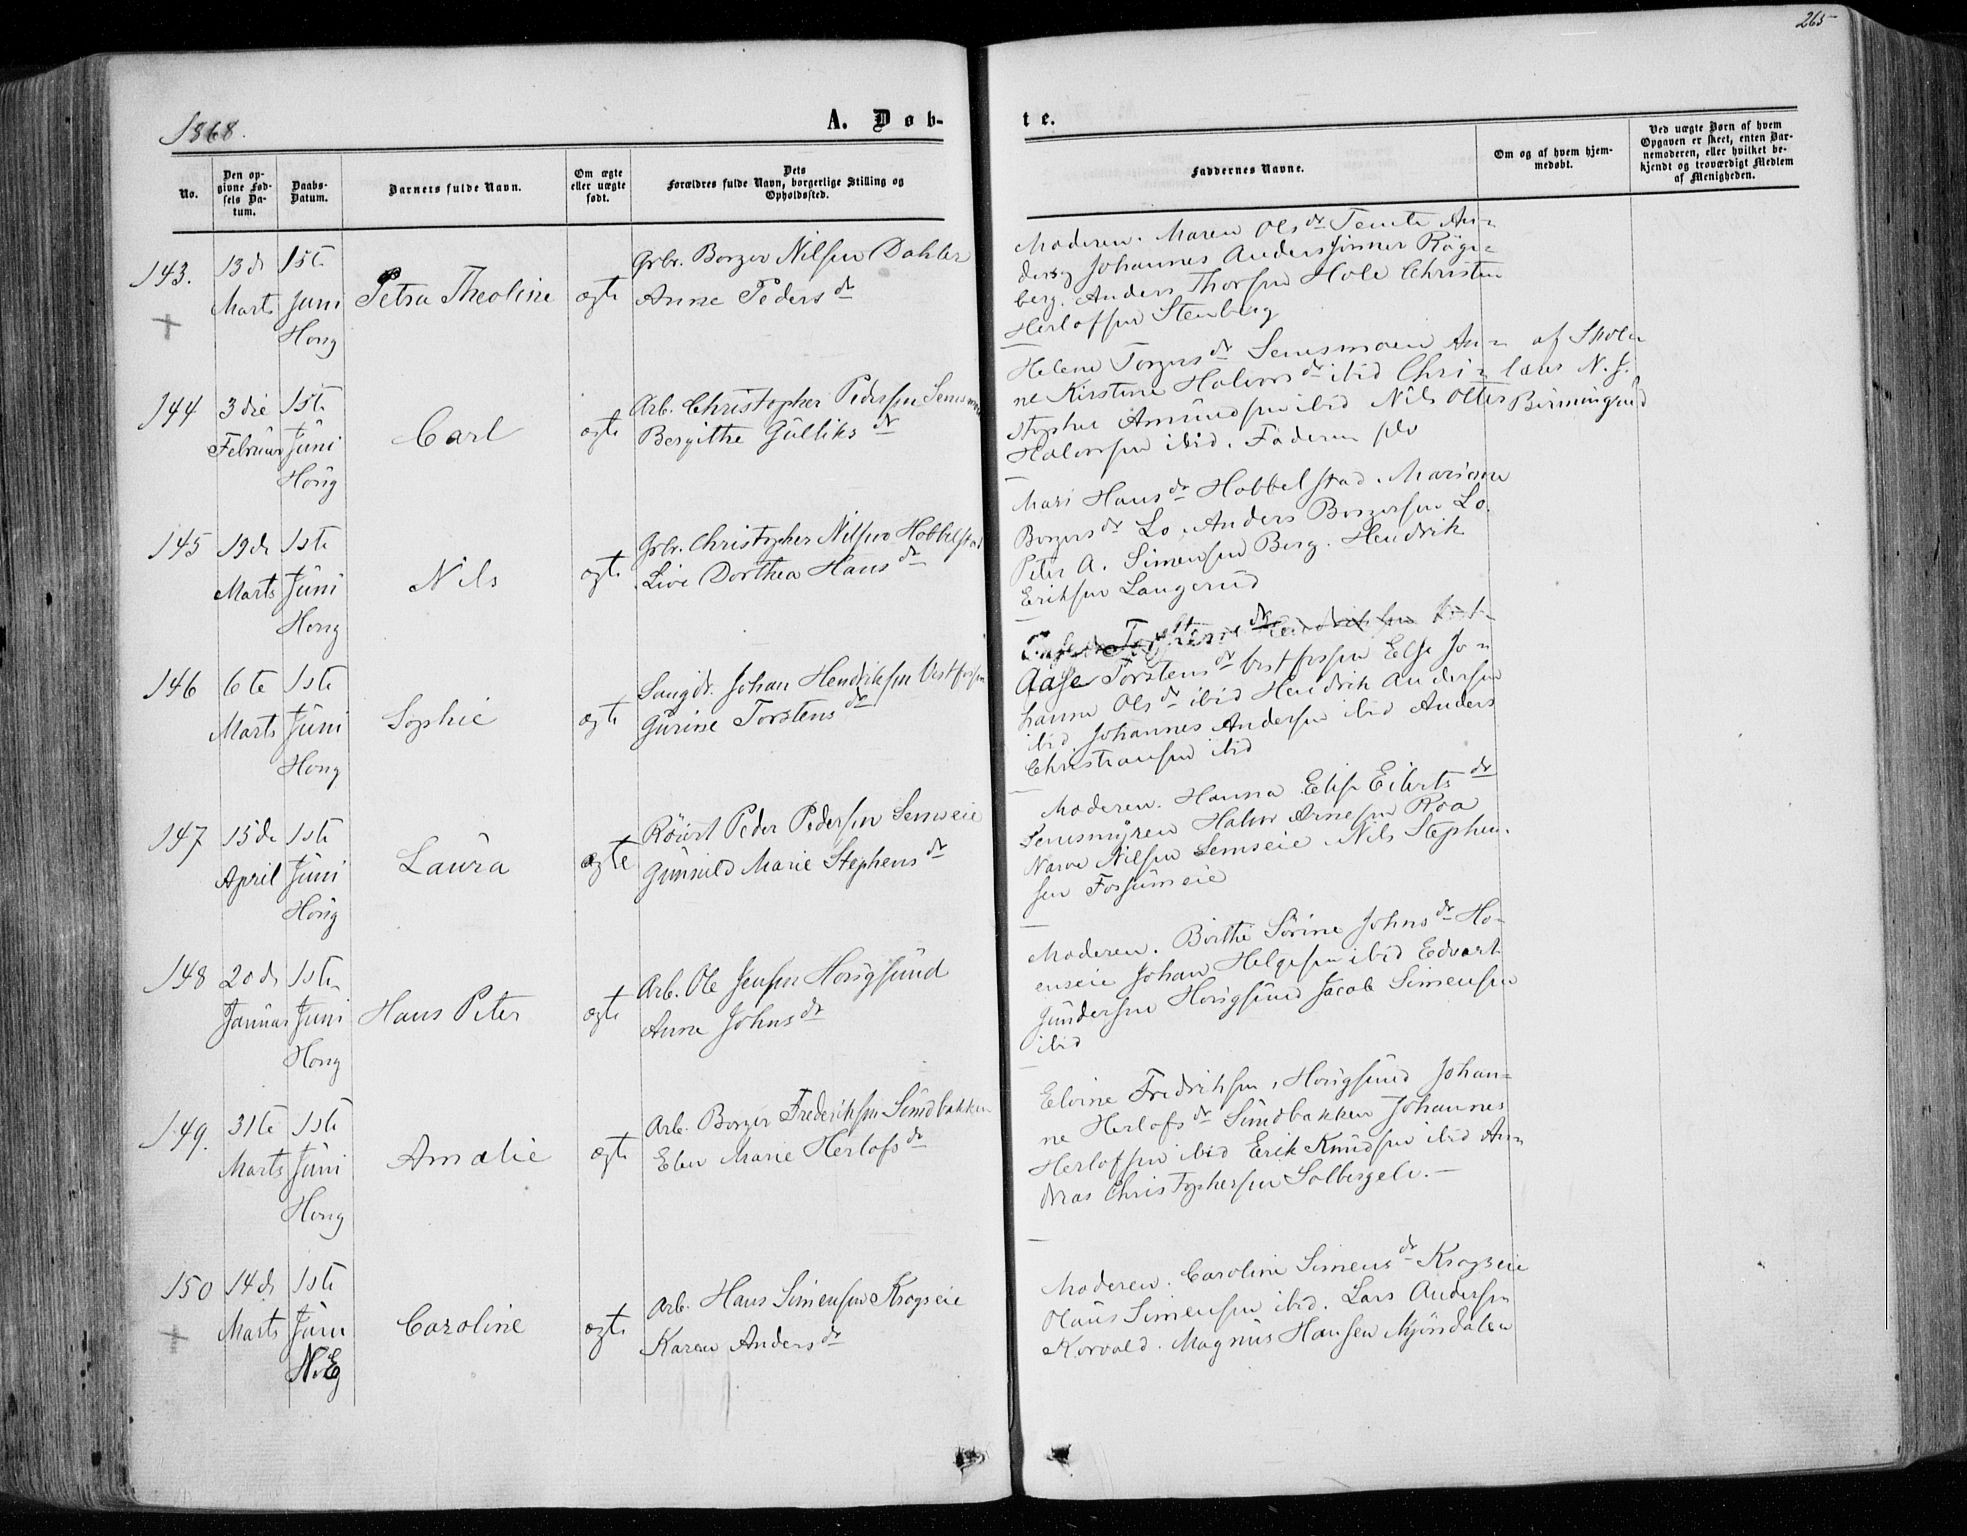 265
1868.
A. Døb-
te.
No.
Den op-
givne Fød-
sels Da-
tum.
Daabs-
Datum.
Barnets fulde Navn.
Om ægte
eller uægte
født.
Dets
Forældres fulde Navn, borgerlige Stilling og
Opholdssted.
Faddernes Navne.
Om og af hvem hjem-
medøbt.
Ved uægte Børn af hvem
Opgaven er skeet, enten Bar-
nemoderen, eller hvilket be-
kjendt og troværdigt Medlem
af Menigheden.
143.
13de
Marts
1ste
Juni
Houg
Petra Theoline
ægte
Grbr. Borger Nilsen Dahler
Anne Pedersdr
Moderen. Maren Olsdr Temte An-
ders Johannes Anders
berg. Anders Thorsen Hole Christen
Herlofsen Stenberg
144
3die
Februar
1ste
Juni
Houg
Carl
ægte
Arb. Christopher Pedersen Semsmoen
Bergithe Gulliksdr
Helene Torgersdr Semsmoen An-
ne Kirstine Halvorsdr ibid Chri-
stopher Amundsen ibid Nils Otter
Halvorsen ibid. Faderen selv
af Skole
lærer N. J.
Birmingrud
145
19de
Marts
1ste
Juni
Houg
Nils
ægte
Grbr. Christopher Nilsen Hobbelstad
Live Dorthea Hansdr
Mari Hansdr Hobbelstad. Mariane
Borgersdr Lo. Anders Borgersen Lo.
Peter A. Simensen Berg. Hendrik
Eriksen Langerud
146
6te
Marts
1ste
Juni
Houg
Sophie
ægte
Saugdr. Johan Hendriksen Vestfossen
Gurine Torstensdr
Aase Torstensdr Vestfossen Else Jo-
hanne Olsdr ibid Hendrik Andersen
ibid. Johannes Andersen ibid Anders
Christiansen ibid
147
15de
April
1ste
Juni
Houg
Laura
ægte
Peder Pedersen Semseie
Gunild Marie Stephensdr
Moderen. Hanna Elise Eilertsdr
Semsmyren Halvor Arnesen Roa
Narve Nilsen Semseie. Nils Stephen-
sen Fossumeie
148
20de
Januar
1ste
Juni
Houg
Hans Peter
ægte
Arb. Ole Jensen Hougsund
Anne Johnsdr
Moderen. Berthe Sørine Johnsdr Ho-
enseie Johan Helgesen ibid Edvart
Gundersen Hougsund Jacob Simensen
ibid
149.
31te
Marts
1ste
Juni
Houg
Amalie
ægte
Arb. Borger Frederiksen Sundbakken
Elen Marie Herlofsdr
Elvine Fredriksen, Hougsund Johan-
ne Herlofsdr Sundbakken Johannes
Herlofsen ibid Erik Knudsen ibid An-
dreas Christophersen Solbergelv.
150
14de
Marts
1ste
Juni
N.Eg
Caroline
ægte
Arb. Hans Simensen Krogseie
Karen Andersdr
Moderen. Caroline Simensdr Krogseie
Olaus Simensen ibid. Lars Andersen
Korvald. Magnus Hansen Mjøndalen